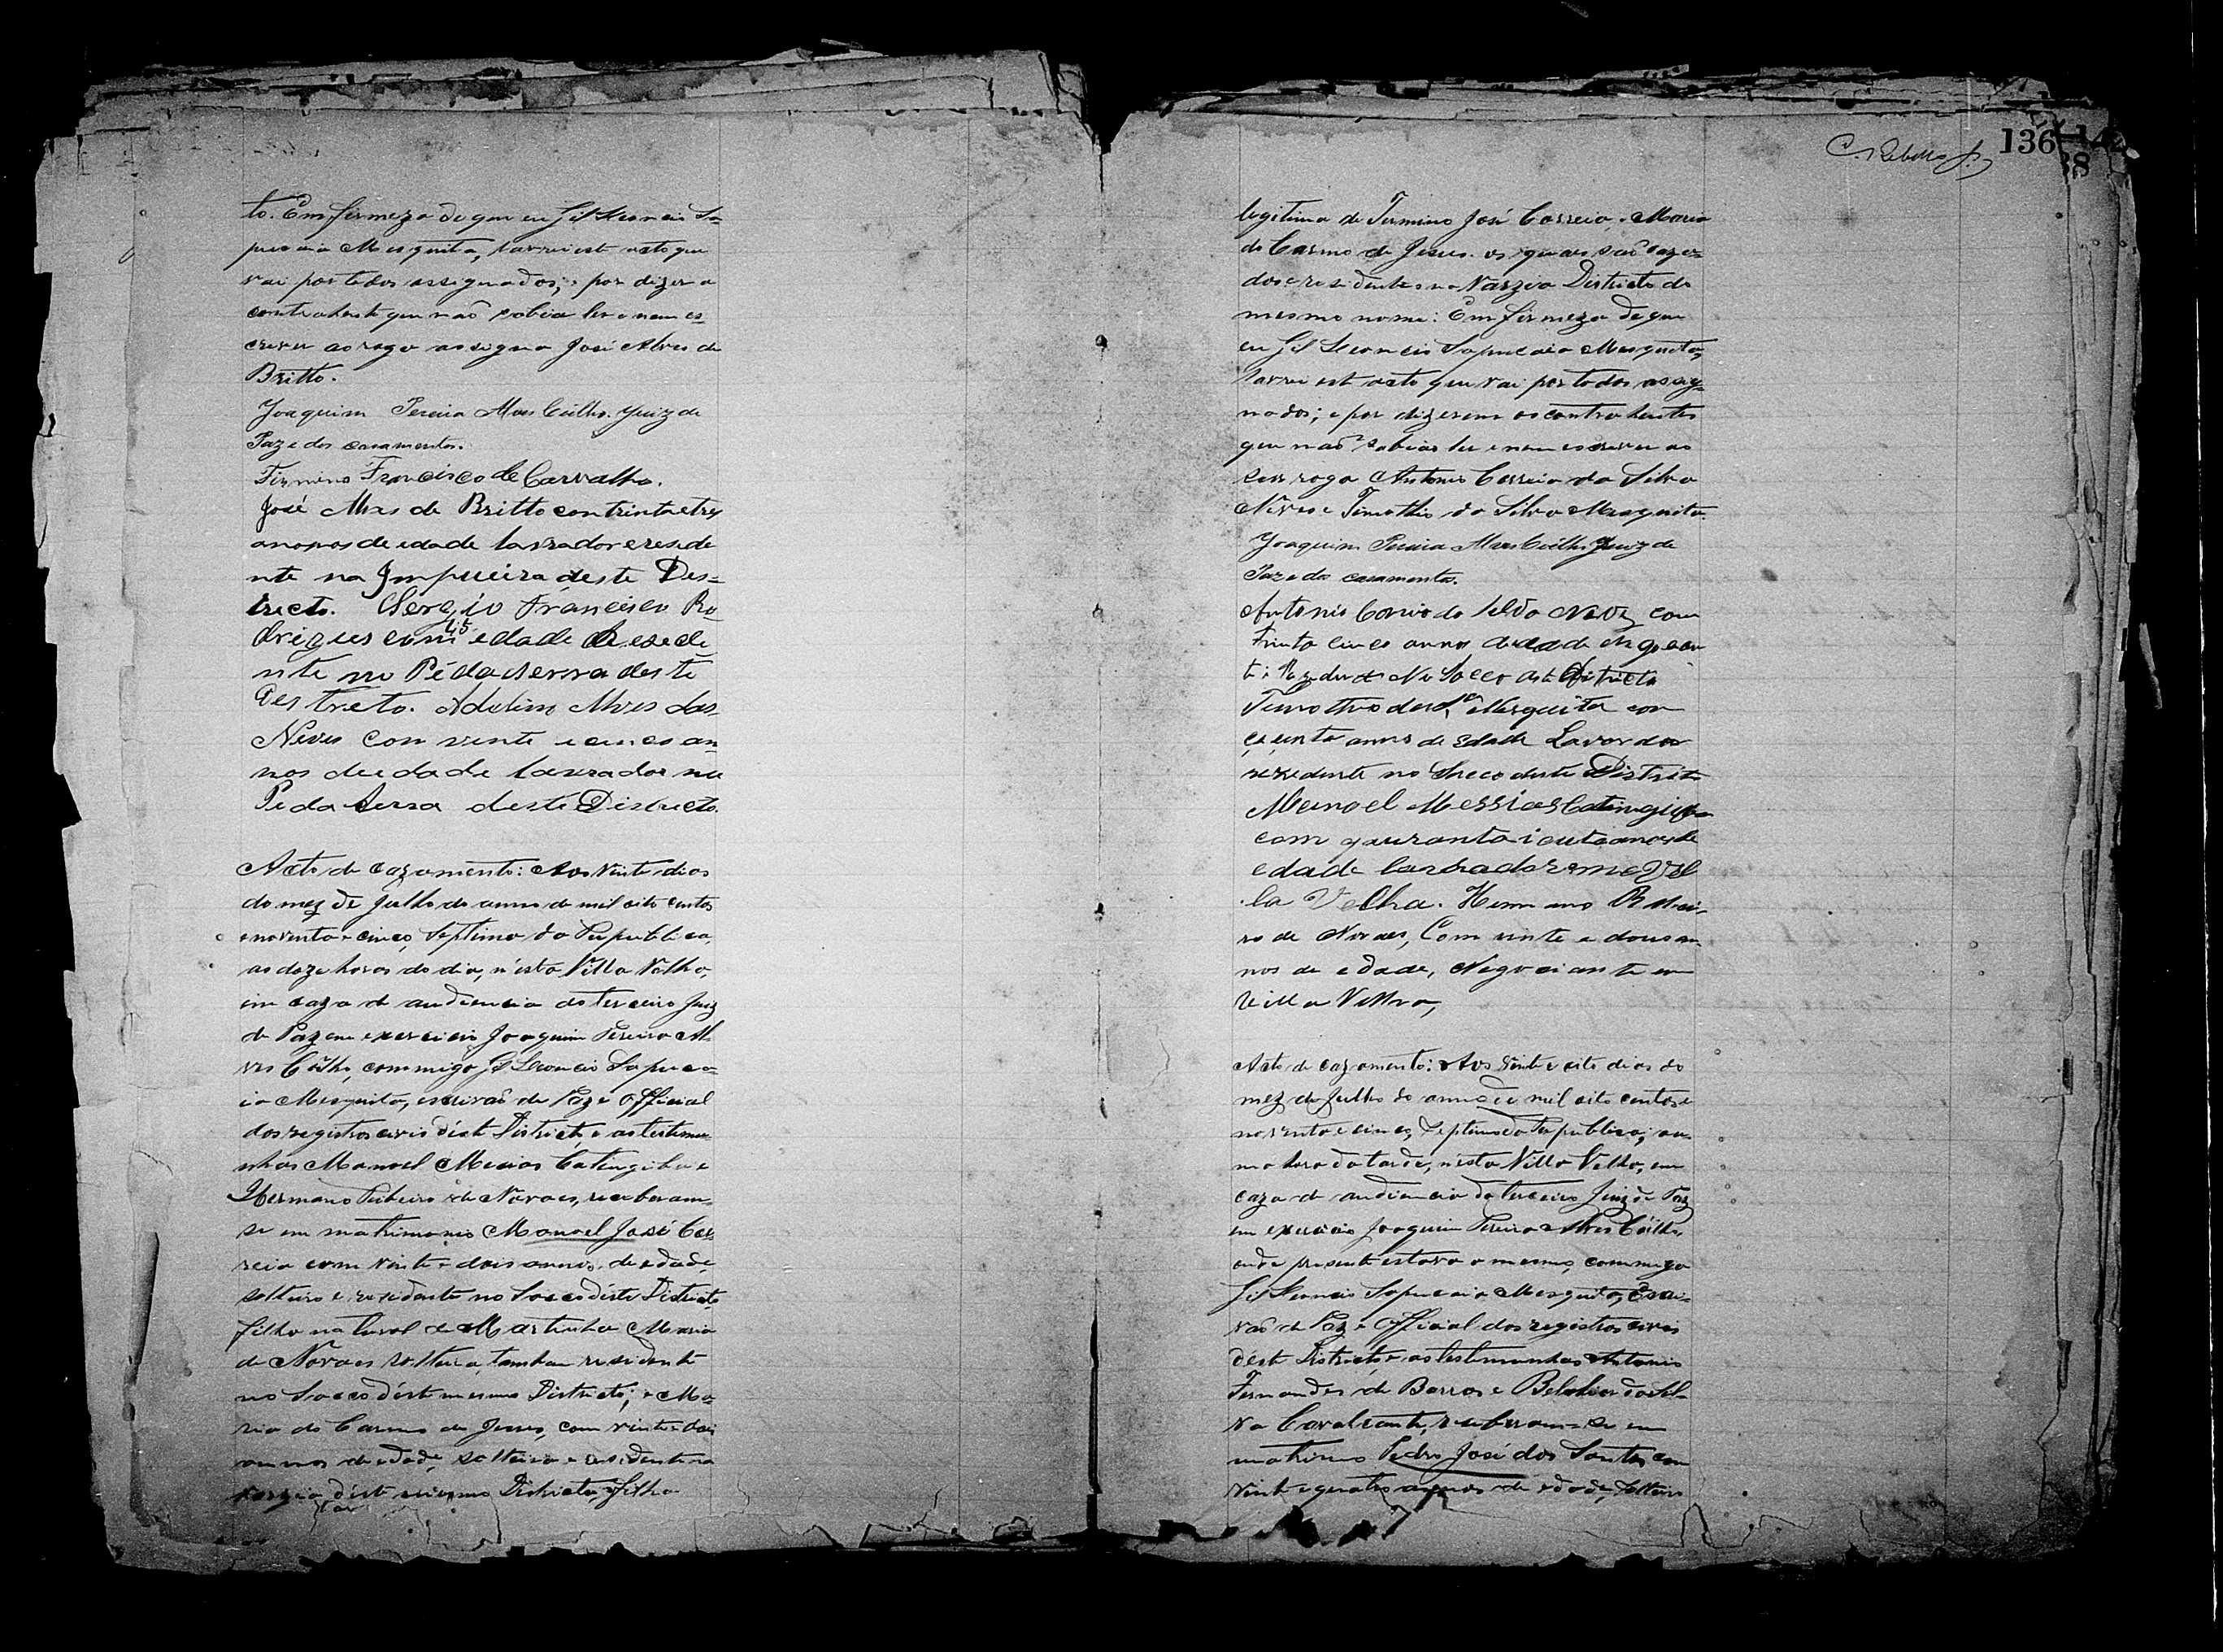 to. Em firmeza de que eu Gil Leoncio Sa-
pucaia Mesquita, lavrei este acto que
vai por todos assignados; e por dizer a
contrahente que não sabia ler e nem es-
crever ao rogo assigna José Alves de
Britto.
Joaquim Pereira Alves Coêlho. Juiz de
Paz e dos casamentos.
Firmino Francisco de Carvalho.
José Alves de Britto con trinta e tres
anonos de edade lavrador e resede
nte na Impueira deste Des=
trecto. Sergio Francisco Ro
drigues com 45 edade Resede
nte no Pé da Serra deste
Destreto. Adelino Alves das
Neves Con vente e cinco an
nos de edade lavrador no
Pé da Serra deste Districto.
Acto de cazamento: Aos vinte dias
do mez de Julho do anno de mil oito centos
e noventa e cinco, septimo da Republica,
as doze horas do dia, n'esta Villa Velha,
em caza de audiencia do terceiro Juiz
de Paz em exercicio Joaquim Pereira Al
ves Coêlho, commigo Gil Leoncio Sapuca-
ia Mesquita, escrivão de Paz e Official
dos registros civis dêste Districto, e as testemu-
nhas Manoel Mecias Catingiba e
Hermano Ribeiro de Novaes, receberam-
se em matrimonio Manoel José Cor
reia com vinte e dois annos, de edade,
solteiro e residente no Sacco dêste Districto,
filho natural de Martinha Maria
de Novaes solteira, tambem residente
no Sacco dêste mesmo Districto; e Ma-
ria do Carmo de Jesus, com vinte e dois
annos de edade, solteira e residente na
varzia dêste mesmo Districto, filha
legitima de Firmino José Correia, e Maria
do Carmo de Jesus. os quaes são caza-
dos e residentes na Varzia Districto do
mesmo nome: Em firmeza de que
eu Gil Leoncio Sapucaia Mesquita,
lavrei este acto que vai por todos assig-
nados; e por dizerem os contrahentes
que não sabião ler e nem escrever ao
seu rogo Antonio Correia da Silva
Neves e Timothio da Silva Mesquita.
Joaquim Pereira Alves Coêlho Juiz de
Paz e do casamento.
Antonio Correia da Silva Neves com
trinta cinco annos de edade negocian
te: Rezedente No Sacco deste Districto
Timothio da Sa. Mesquita con
cecenta annos de Edade Lavorador
rezedente no Sacco deste Districto
Manoel Messias Catingiba
com quarenta i outo anos de
edade lavrador em a Vil
la Velha. Hermano Ribei-
ro de Novaes, Com vinte e dous an-
nos de edade, Negociante em
Villa Velha,
Acto de cazamento: Aos vinte e oito dias do
mez de Julho do anno de mil oito centos e
noventa e cinco, septimo da Republica; a u-
ma hora da tarde, n'esta Villa Velha, em
caza de audiencia do terceiro Juiz de Paz
em exercicio Joaquim Pereira Alves Coêlho,
onde presente estava o mesmo, commigo
Gil Leoncio Sapucaia Mesquita, Escri-
vão de Paz e Official dos registros civis
dêste Districto, e as testemunhas Antonio
Fernandes de Barros e Belchior da Sil-
va Cavalcante, receberam-se em
matrimo Pedro José dos Santos com
vinte e quatro annos de edade, solteiro
C. Rebello Jr.
136
38